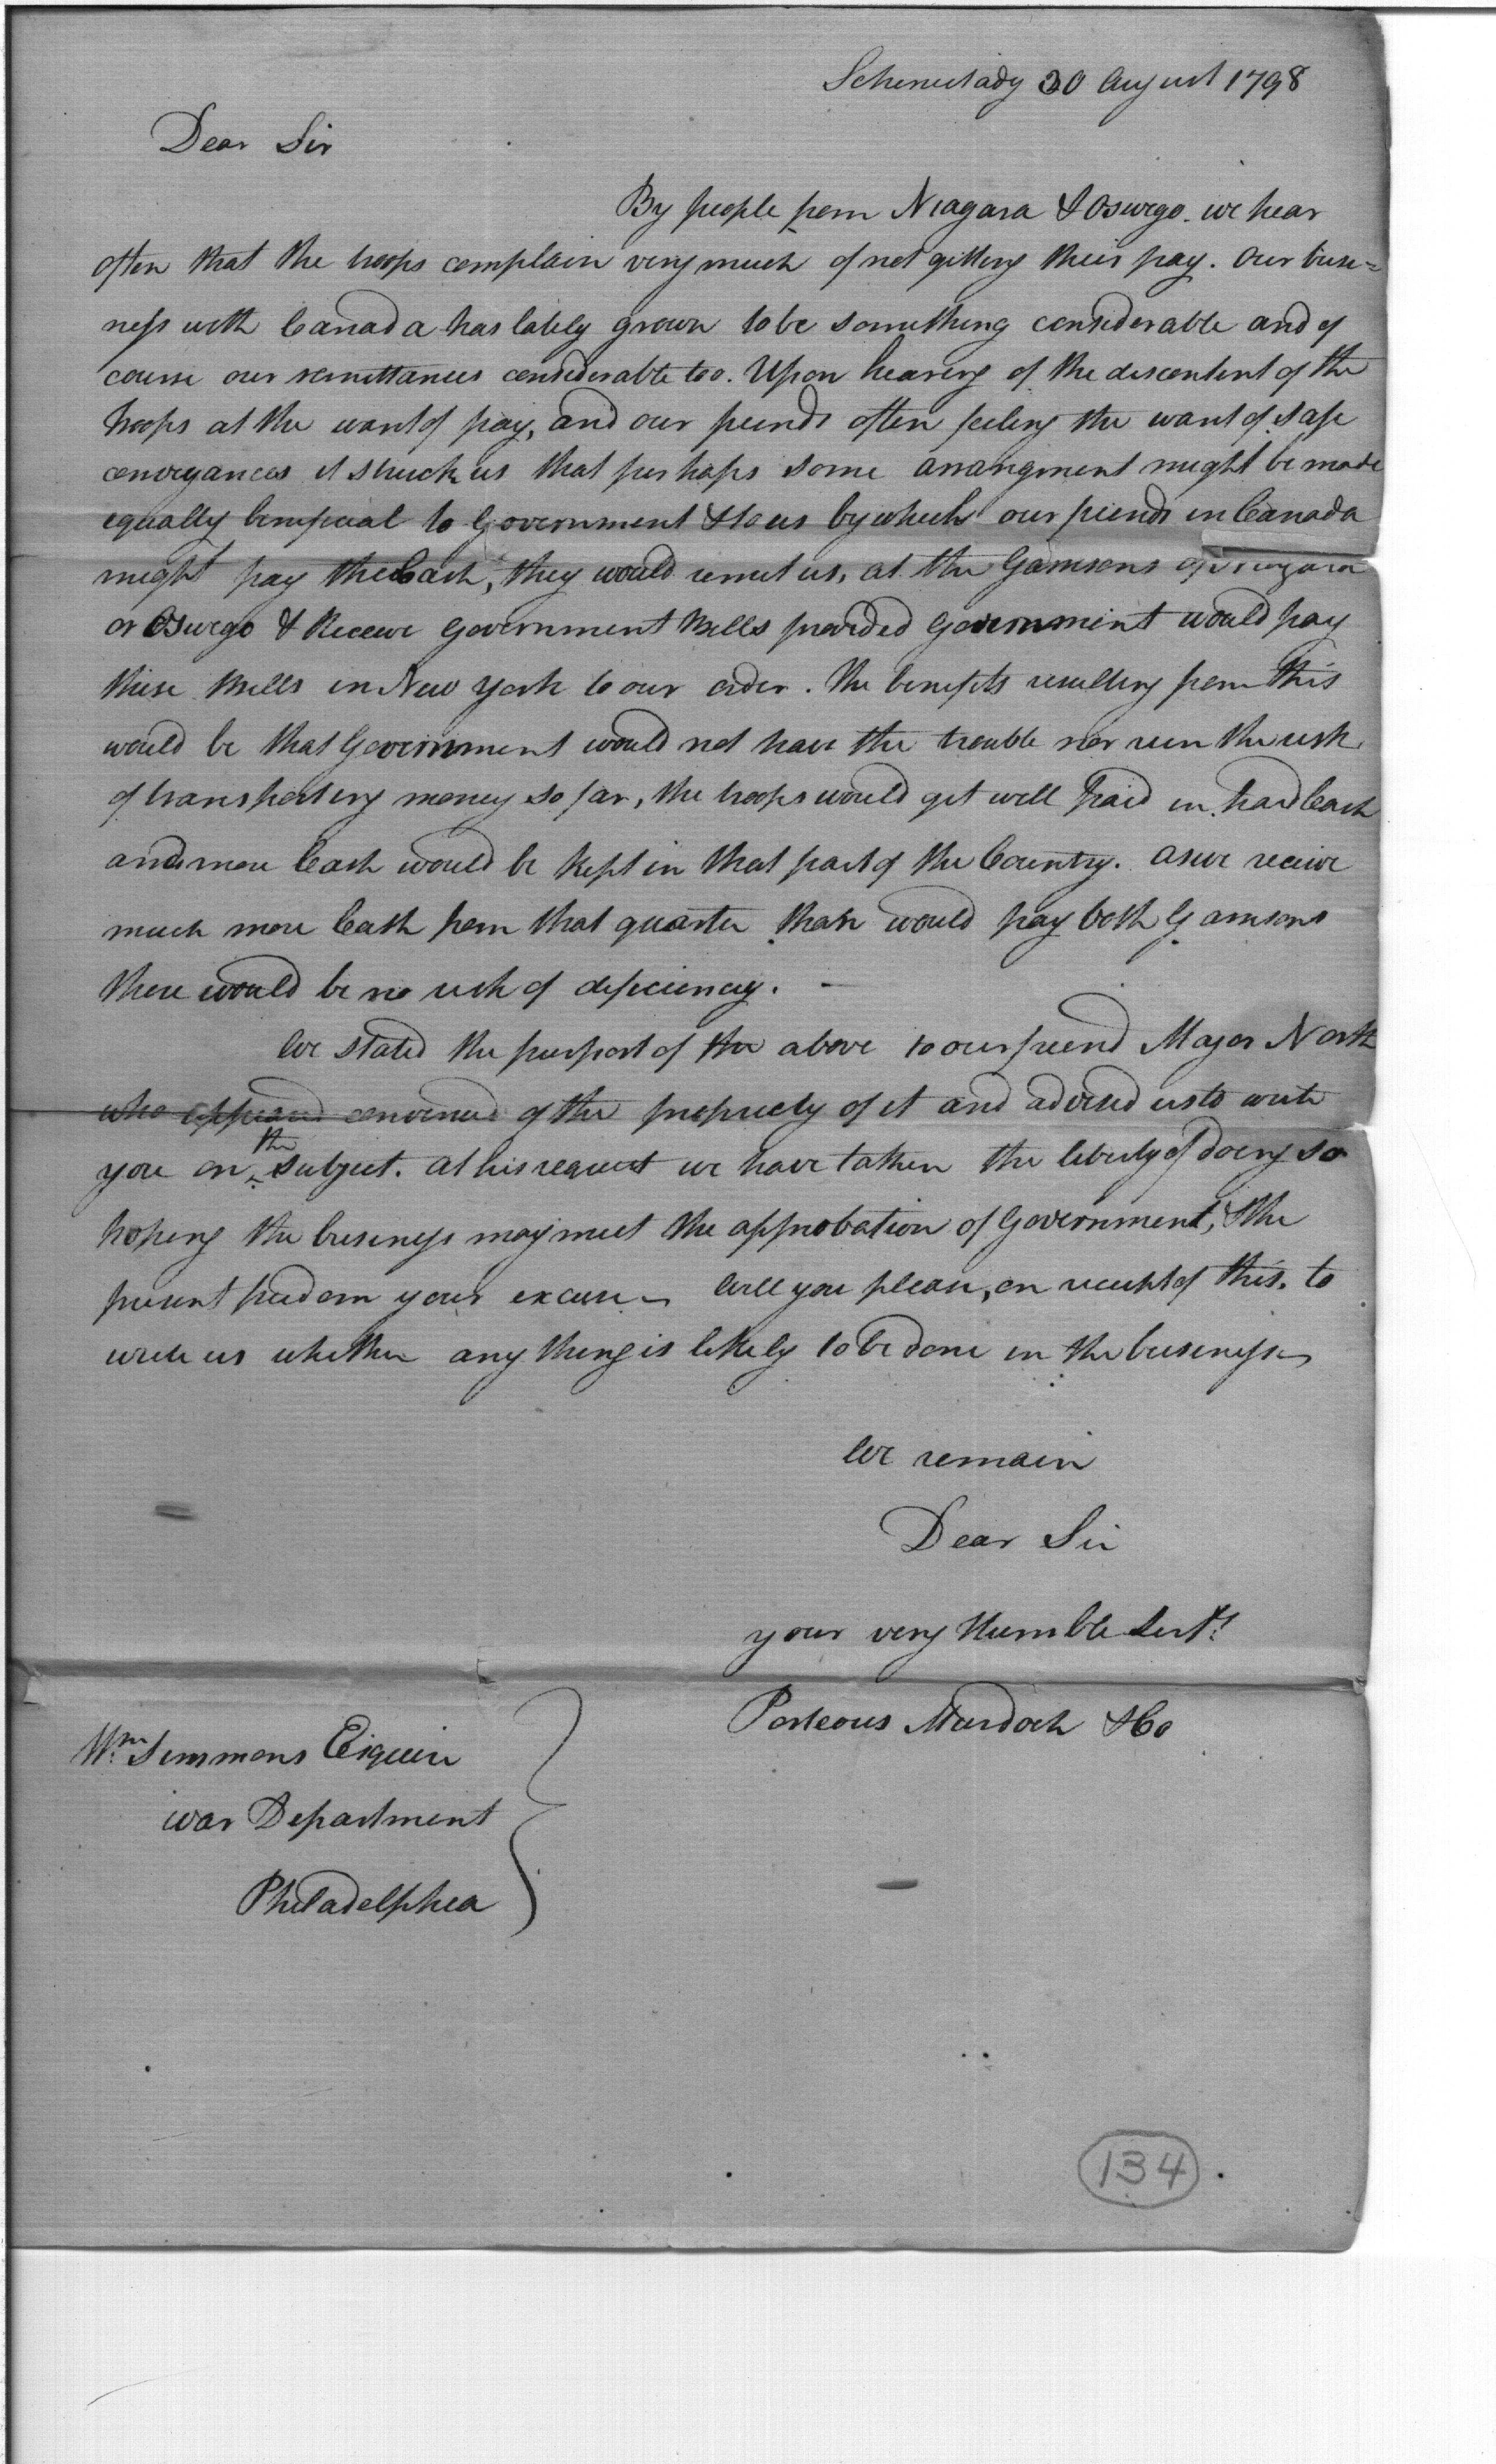 Schenectady 30 August 1798
Dear Sir
By people from Niagara & Oswego we hear
often that the troops complain very much of not gitting their pay. Our busi=
ness with Canada has lately grown to be something considerable and of
course our remittances considerable too. Upon hearing of the discontent of the
troops at the want of pay, and our friends often feeling the want of safe
conveyances it struck us that perhaps some arrangment might be made
equally beneficial to Government & to us by which our friends in Canada
might pay the Cash, they would remit us, at the Garrisons of Niagara
or Oswego & Receive Government Bills provided Government would pay
these Bills in New York to our order. The benefits resulting from this
would be that Government would not have the trouble nor run the risk
of transporting money so far, the troops would get well paid in hard Cash
and more Cash would be kept in that part of the Country. As we receive
much more Cash from that quarter than would pay both Garrisons
there would be no risk of deficiency. —
We stated the purport of the above to our friend Major North
who appeared convinced of the propriety of it and advised us to write
you on the subject. At his request we have taken the liberty of doing so
hoping the business may meet the approbation of Government, & the
present freedom your excuse. Will you please, on receipt of this, to
write us whether any thing is likely to be done in the business
We remain
Dear Sir
your very Humble Servts
Porteous Murdoch & Co
Wm. Simmons Esquire
War Department
Philadelphia
134